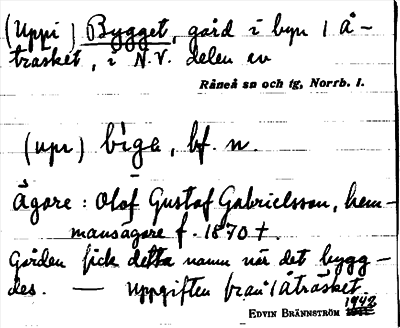 (Uppi) Bygget, gård i byn 1 å-
träsket, i N.V. delen av
Råneå sn och tg, Norrb. l.
(upi) bige, bf. n.
Ägare: Olof Gustaf Gabrielsson, hem-
mansägare f. 1870 †.
Gården fick detta namn när det bygg-
des. — Uppgiften från 1 åträsket
1942
EDVIN BRÄNNSTRÖM